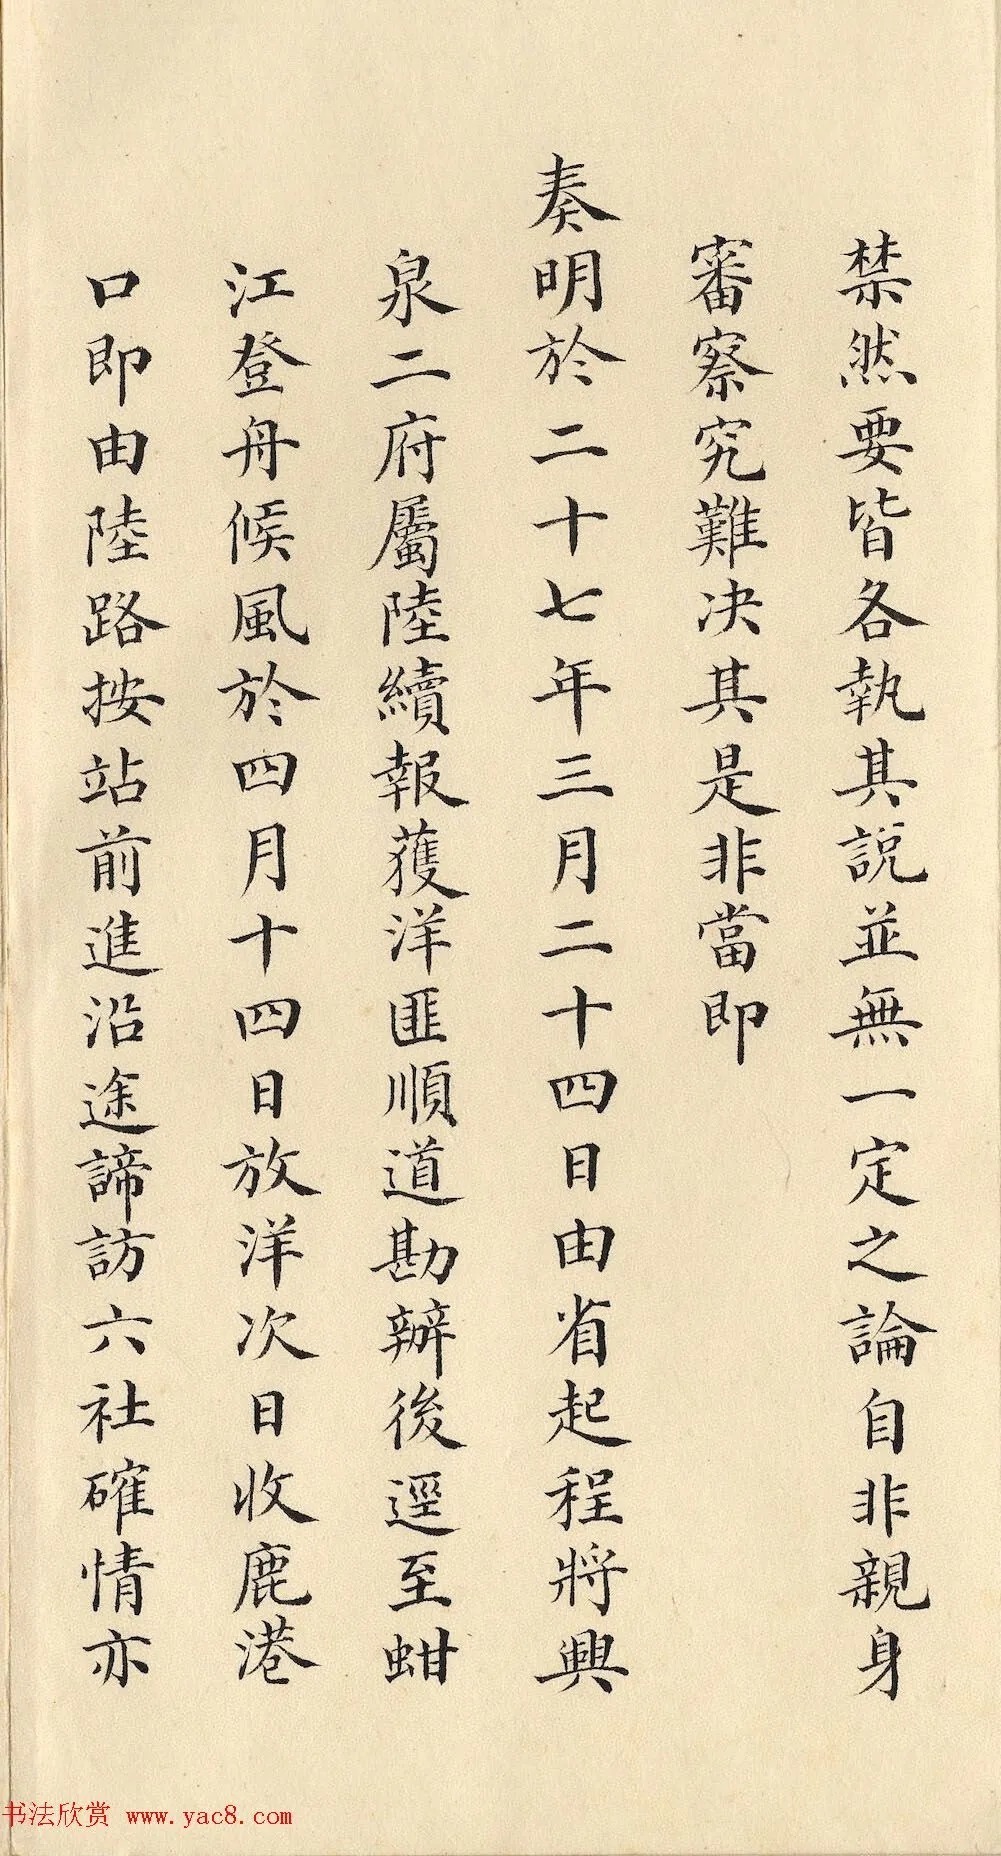 禁然要皆各執其說並無一定之論自非親身
審察究難決其是非當即
奏明於二十七年三月二十四日由省起程將興
泉二府屬陸續報獲洋匪順道勘辦後逕至蚶
江登舟候風於四月十四日放洋次日收鹿港
口即由陸路按站前進沿途諦訪六社確情亦
书法欣赏 www.yac8.com